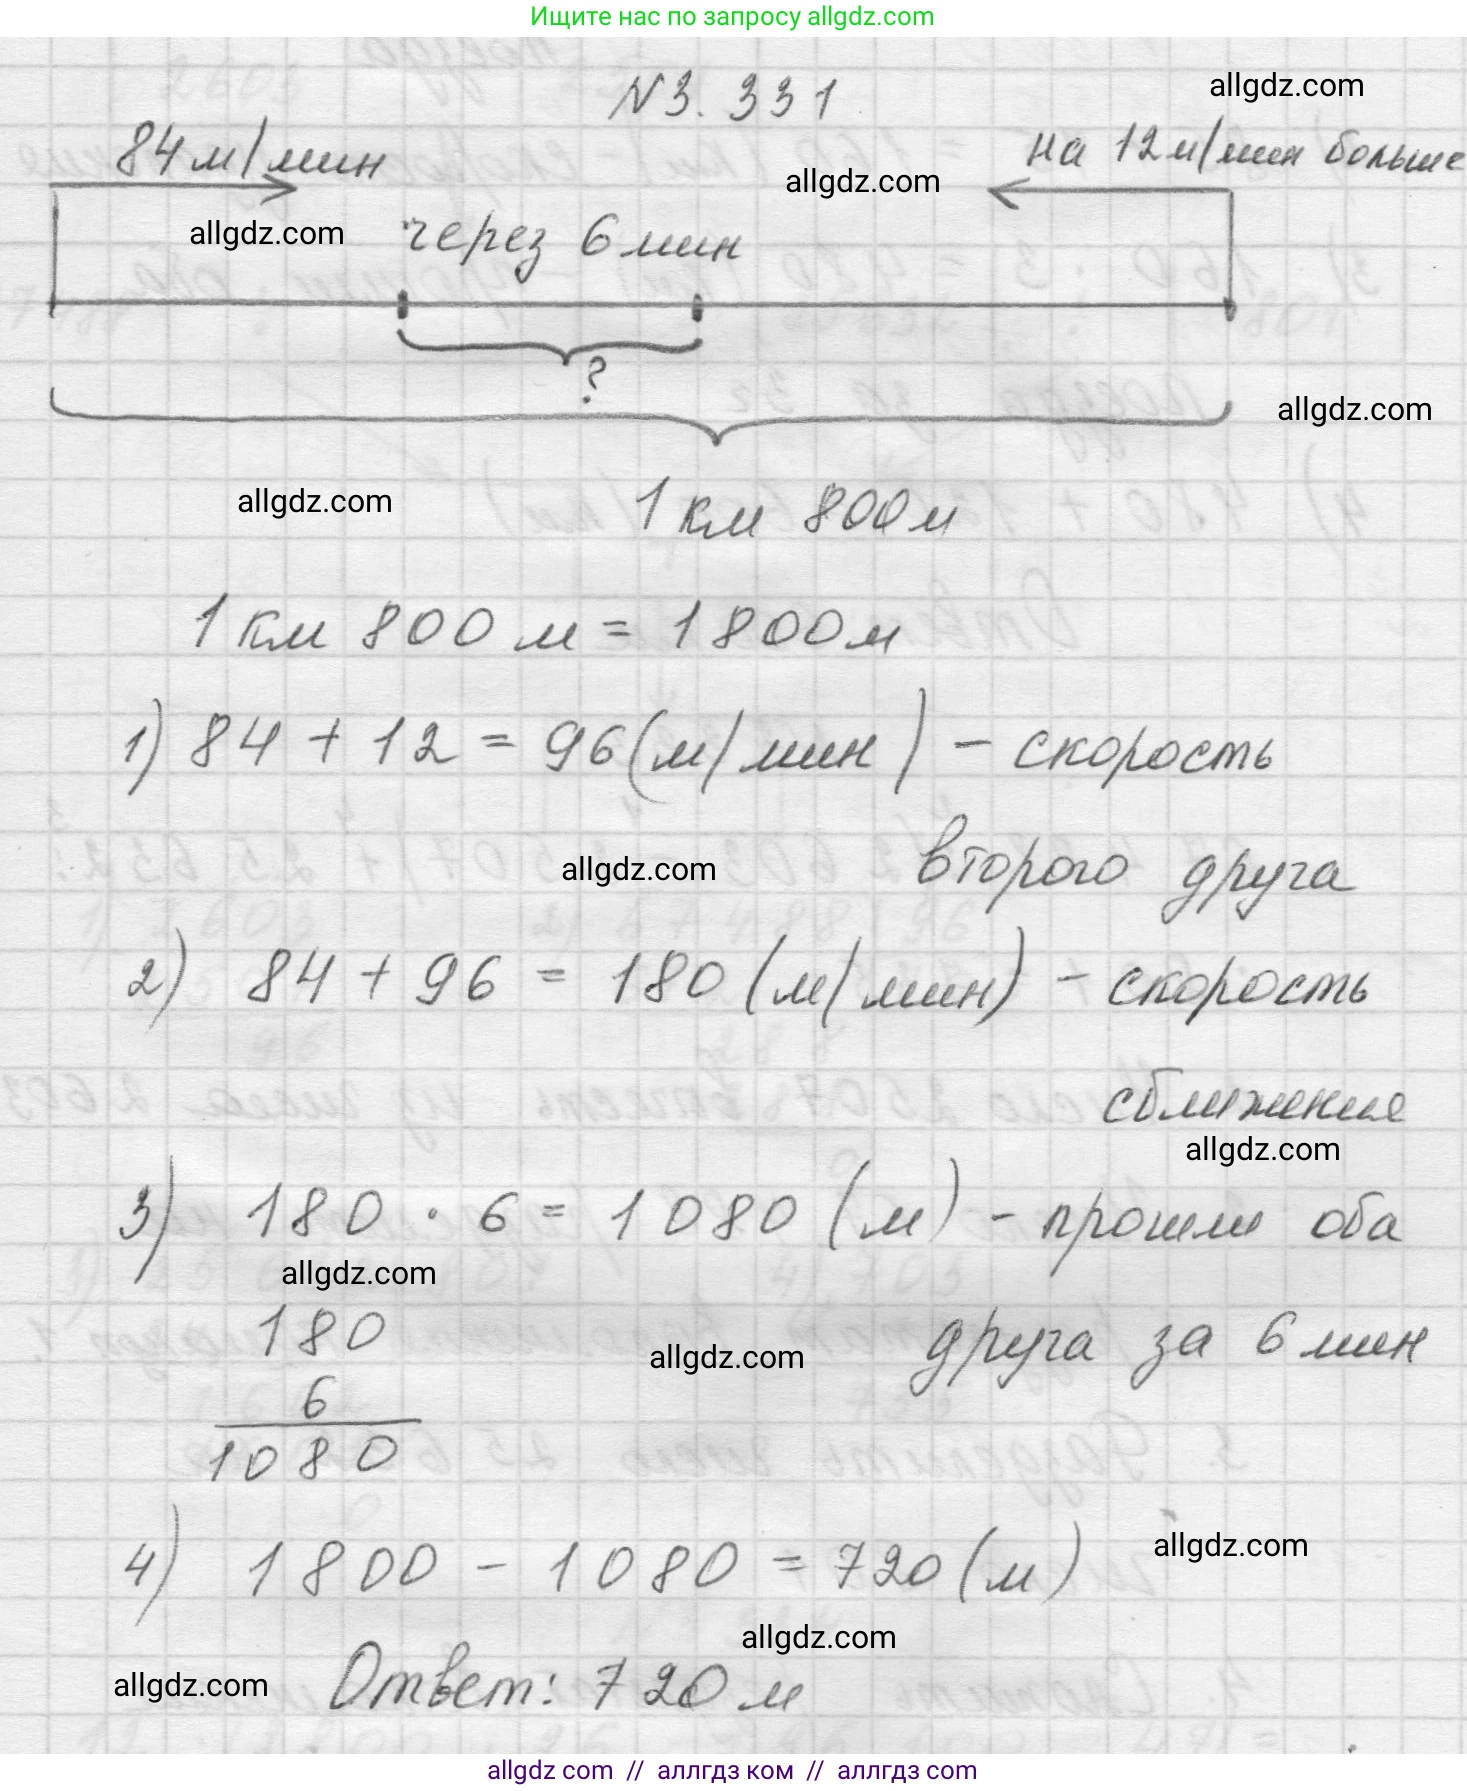 Ищите нас по запросу allgdz.com
N3.331
allgdz.com
84м/мин
на 12м/мин больше
allgdz.com
allgdz.com
через 6мин
?
allgdz.com
allgdz.com
1км 800м
1км 800м = 1800м
1) 84 + 12 = 96(м/мин) - скорость
allgdz.com
второго друга
2) 84 + 96 = 180 (м/мин) - скорость
сближения
allgdz.com
3) 180 · 6 = 1080 (м) - прошли оба
allgdz.com
180
allgdz.com
друга за 6мин
6
1080
4) 1800 - 1080 = 720(м)
allgdz.com
allgdz.com
allgdz.com
Ответ: 720м
allgdz com // аллгдз ком // аллгдз com